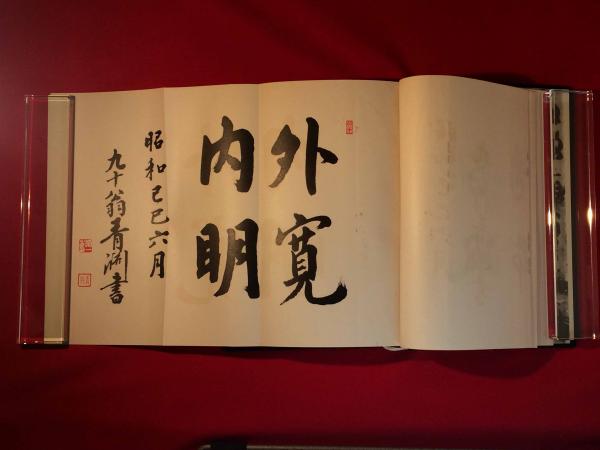 外寛
内明
昭和己巳六月
九十翁青淵書